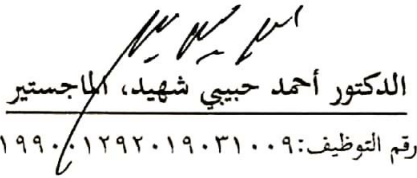 الدكتور أحمد حبيبي شهيد، الماجستير
رقم التوظيف:١٩٩٠٠١٢٩٢٠١٩٠٣١٠٠٩